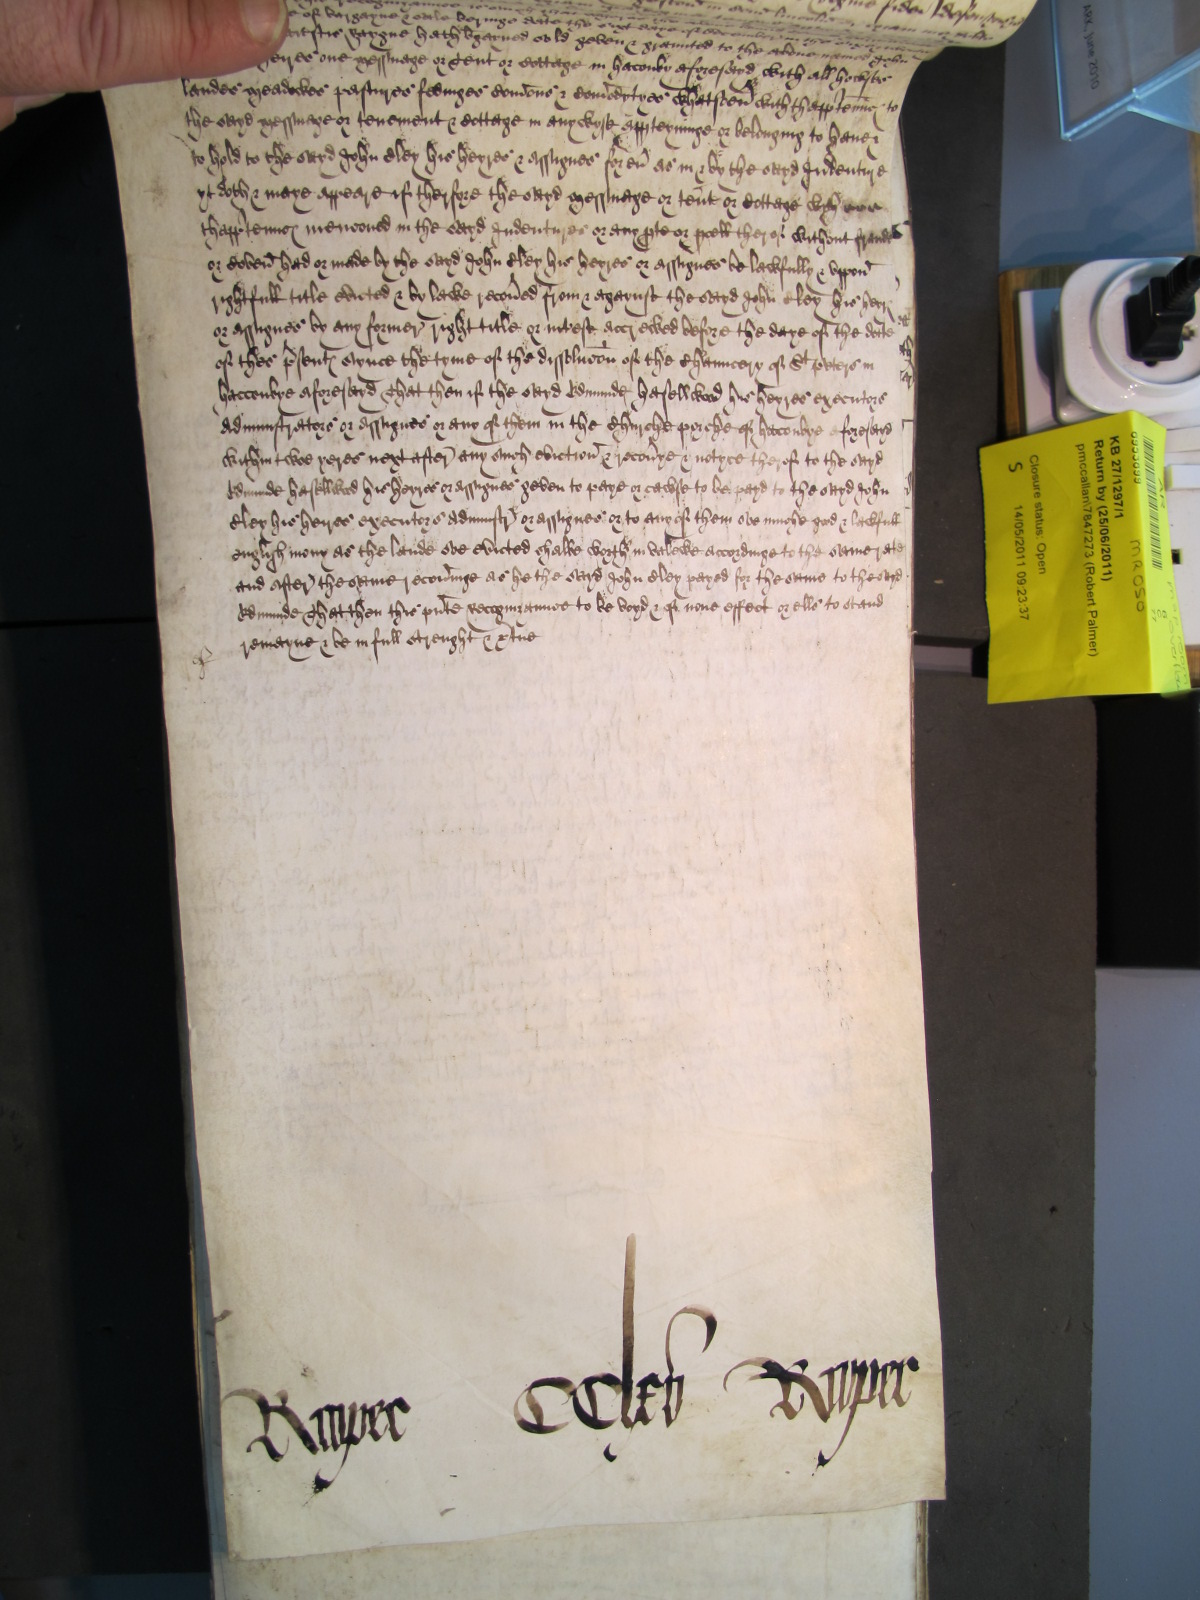 heires one messuage or tent or cottage in hacconby aforesayd with all howses
landes meadowes pastures fedinges comons & comodytyes whatsoeu with thapptennc to
the sayd messuage or tenement & cottage in any wyse apptayninge or belonging to haue &
to hold to the sayd John Eley his heyres & assignes for eu as in & by the sayd Indenture
yt doth & maye appeare if therfore the sayd messuage or tent or cottage wyth
thapptennc mencioned in the sayd Indentures or any pte or pcell therof without fraude
or coven had or made by the sayd John Eley his heyres or assignes be lawfully & vppon
rightfull title evicted & by lawe recoued from & agaynst the sayd John Eley his heyr
or assignes by any former right title or intrest accrewed before the daye of the date
of thes psent synce the tyme of the dissolucon of the Chauncery of St peters in
hacconbye aforesayd That then if the sayd Edmunde hasellwood his heyres executors
administrators or assignes or any of them in the Churche porche of hacconbye aforesayd
within twoe yeres next after any such eviction & recouye & notyce therof to the sayd
Edmunde hasellwod his heyres or assignes geven to paye or cawse to be payd to the sayd John
Eley his heyres executors administr or assignes or to any of them soe muche god & lawfull
english mony as the lande soe evicted shalbe worth in valewe accordinge to the same rate
and after the same recouinge as he the sayd John Eley payed for the same to the sayd
Edmunde That then this pnte Recognizaunce to be voyd & of none effect or ells to stand
remayne & be in full strenght & vtue
Roper CClxv Roper
KB 27/1297/1
Return by (25/06/2011)
pmccallam\7847273 (Robert Palmer)
Closure status: Open
S 14/05/2011 09:23:37
MROSO
ARK, June 2010